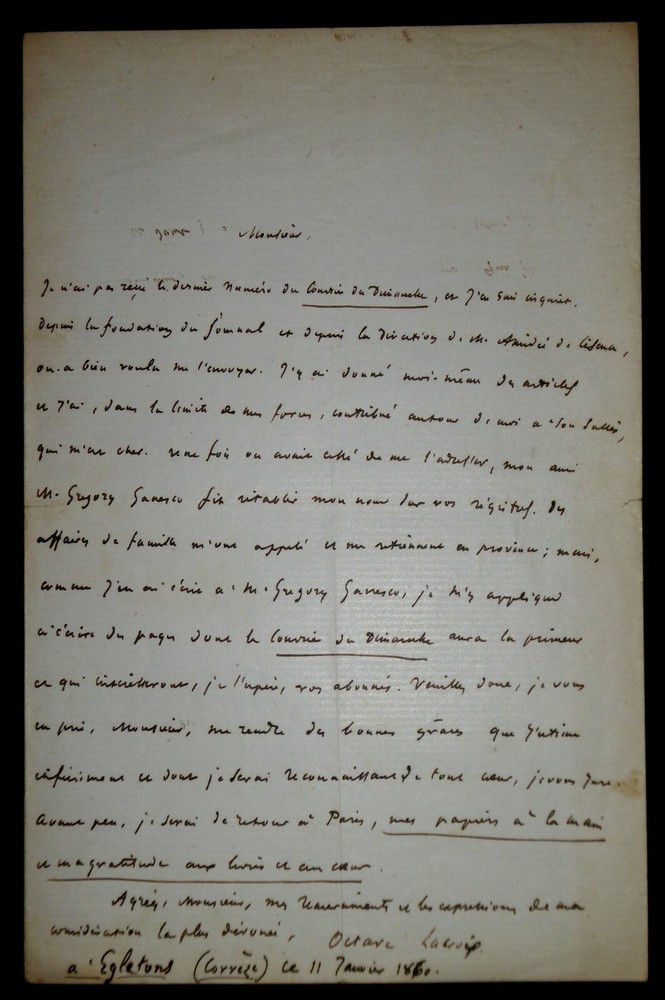 Monsieur,
Je n'ai pas reçu le dernier numéro du Courrier du Dimanche, et j'en suis inquiet.
Depuis la fondation du Journal et depuis la direction de M. Amédée de Césena,
on a bien voulu me l'envoyer. J'y ai donné moi-même des articles
et j'ai, dans la limite de mes forces, contribué autour de moi à son succès,
qui m'est cher. une fois on avait cessé de me l'adresser, mon ami
M. Gregory Ganesco fit rétablir mon nom sur vos régistres. Des
affaires de famille m'ont appelé et me retiennent en province ; mais,
comme j'en ai écrit à M. Gregory Ganesco, je m'y applique
à écrire des pages dont le Courrier du Dimanche aura la primeur
et qui intéresseront, je l'espère, vos abonnés. Veuillez donc, je vous
en prie, Monsieur, me rendre des bonnes grâces que j'estime
infiniment et dont je serai reconnaissant de tout cœur, je vous jure.
Avant peu, je serai de retour à Paris, mes papiers à la main
et ma gratitude aux lèvres et au cœur.
Agréez, Monsieur, mes remerciments et les expressions de ma
considération la plus dévouée,
Octave Lacroix.
à Egletons (Corrèze) ce 11 Janvier 1860.